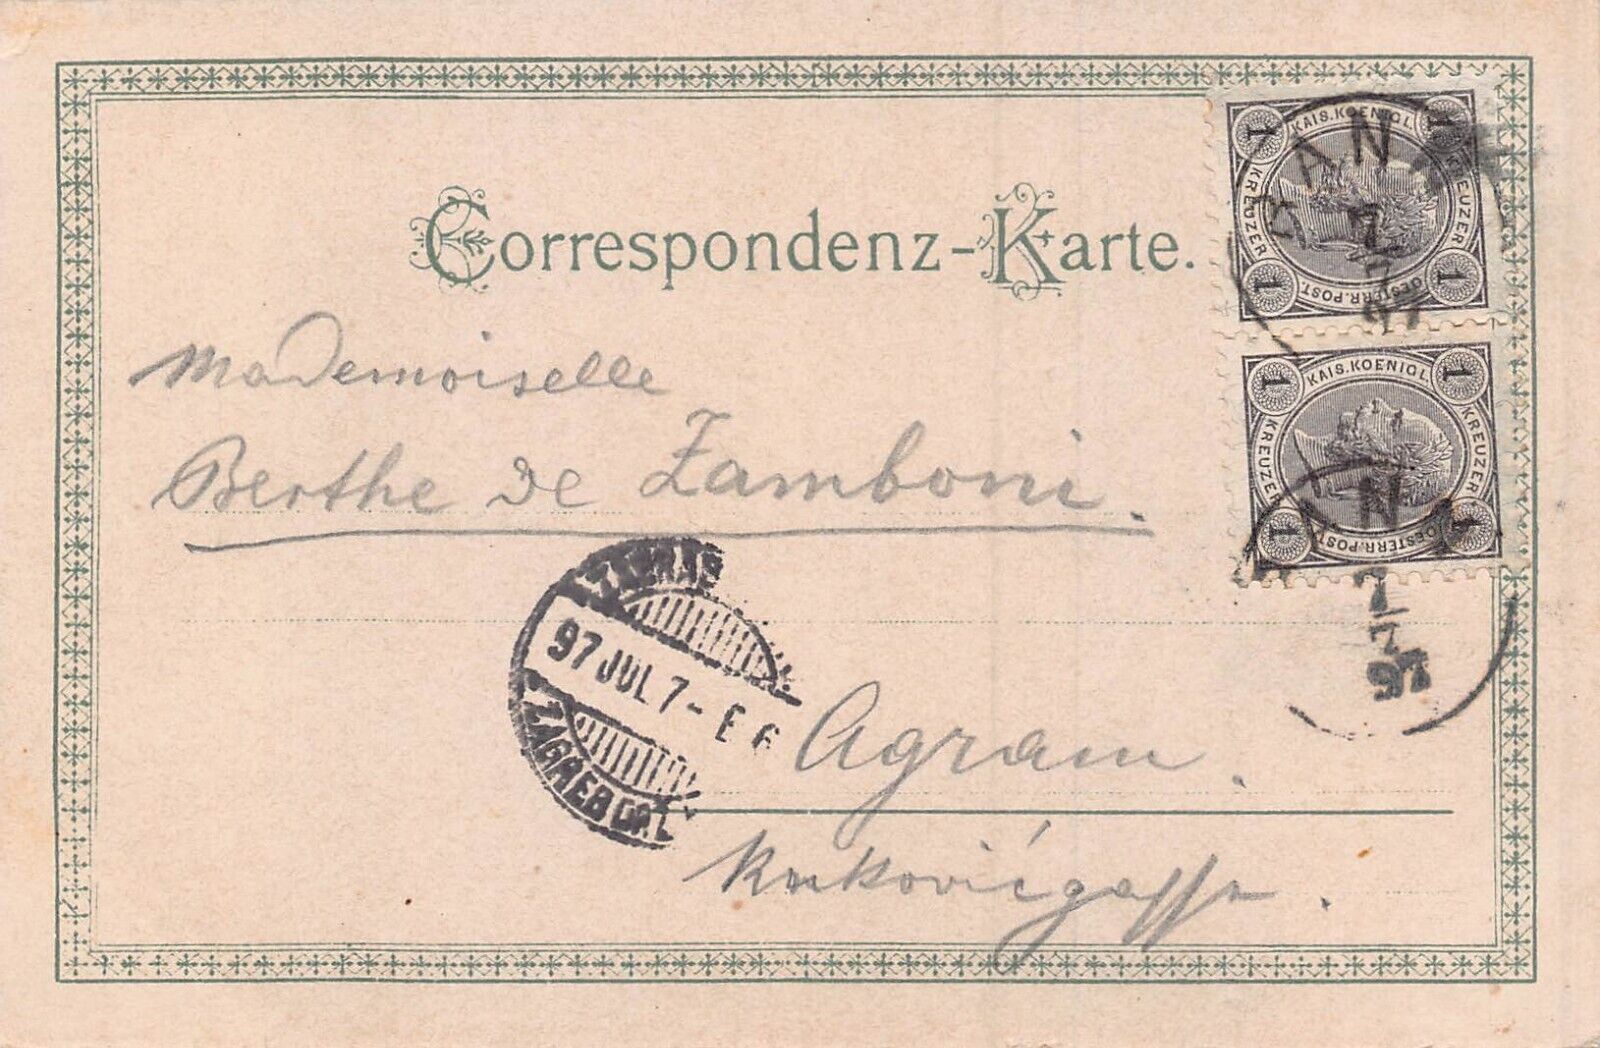 Correspondenz-Karte.
KAIS. KOENIGL.
OESTERR. POST.
KREUZER
KREUZER
1
1
1
1
KAIS. KOENIGL.
OESTERR. POST.
KREUZER
KREUZER
1
1
1
1
7
97
7
97
Mademoiselle
Berthe de Zamboni.
97 JUL 7
ZAGREB
Agram.